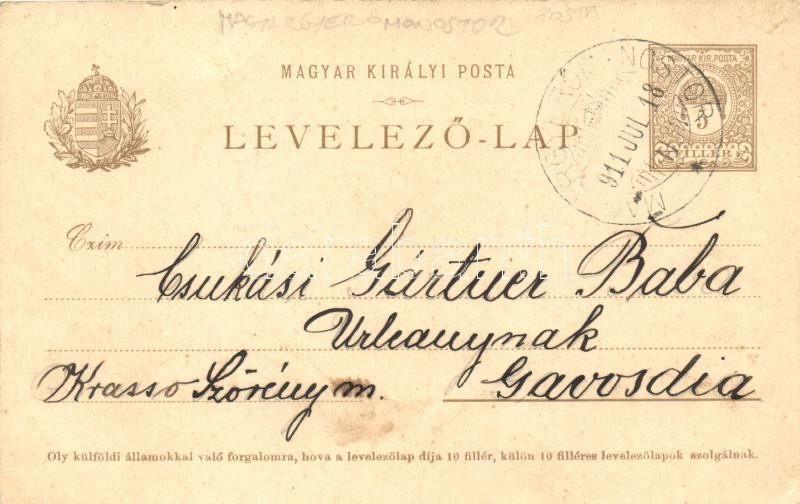 MAGYARGYERŐMONOSTOR POSTA
MAGYAR KIRÁLYI POSTA
MAGYAR KIR. POSTA
LEVELEZŐ-LAP
911 JUL 18
5
FILLÉR
Czim
Csukási Gärtner Baba
Urleanynak
Krasso Szörény m. Gavosdia
Oly külföldi államokkal való forgalomra, hova a levelezőlap díja 10 fillér, külön 10 filléres levelezőlapok szolgálnak.